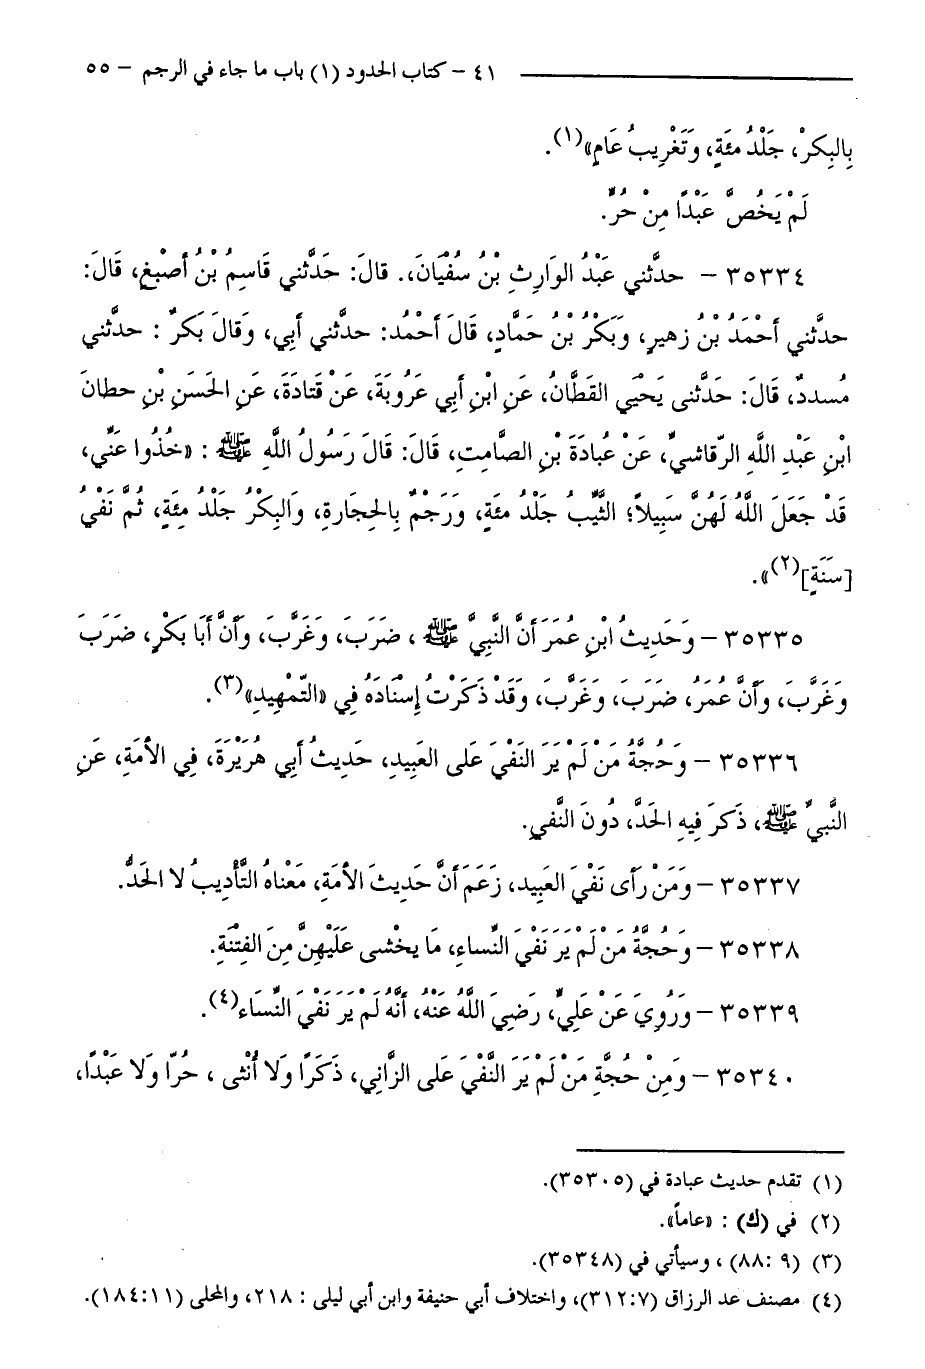 ٤١ – كتاب الحدود (١) باب ما جاء في الرجم – ٥٥
بِالبِكرْ، جَلْدُ مئَةٍ، وَتَغْرِيبُ عَامٍ»(١).
لَمْ يَخُصَّ عَبْدًا مِنْ حُرٍّ.
٣٥٣٣٤ – حدثَّني عَبْدُ الوَارِثِ بْنُ سُفْيَانَ،. قالَ: حَدَّثَني قَاسِمُ بْنُ أصْبغٍ، قَالَ:
حدثَّني أحْمَدُ بْنُ زهيرٍ، وَبَكْرُ بْنُ حَمَّادٍ، قَالَ أحْمُد: حدثَّني أبي، وَقَالَ بَكرٌ : حدثَّني
مُسددٌ، قَالَ: حَدَّثنى يَحْيَي القَطَّانُ، عَنِ ابْنِ أبِي عَرُوبَةَ، عَنْ قَتَادَةَ، عَنِ الحَسَنِ بْنِ حطانَ
ابْنِ عَبْدِ اللَّهِ الرّقَاشيِّ، عَنْ عُبَادَةَ بْنِ الصَّامتِ، قَالَ: قَالَ رَسُولُ اللَّهِ ﷺ : «خُذُوا عَنِّي،
قَدْ جَعَلَ اللَّهُ لَهُنَّ سَبِيلاً؛ الثَّيِّبُ جَلْدُ مئَةٍ، وَرَجْمٌ بِالحِجَارةِ، وَالبِكْرُ جَلْدُ مِئَةٍ، ثُمَّ نَفْيُ
[سَنَةٍ](٢)».
٣٥٣٣٥ – وَحَدِيثُ ابْنِ عُمَرَ أنَّ النَّبِيَّ ﷺ ، ضَرَبَ، وَغَرَّبَ، وَأنَّ أبَا بكْرٍ، ضَرَبَ
وَغَرَّبَ، وَأنَّ عُمَرُ، ضَرَبَ، وغَرَّبَ، وَقَدْ ذَكَرْتُ إسْنَادَهُ فِي «التّمْهِيدِ»(٣).
٣٥٣٣٦ – وَحُجَّةُ مَنْ لَمْ يَرَ النَفْيَ عَلى العَبِيدِ، حَدِيثُ أبِي هُرَيْرَةَ، فِي الأمَةِ، عَنِ
النَّبيِّ ﷺ، ذَكرَ فِيهِ الحَدَّ، دُونَ النَّفي.
٣٥٣٣٧ – وَمَنْ رَأى نَفْيَ العَبِيد، زَعَمَ أنَّ حَدِيثَ الأمَةِ، مَعْناهُ التَّأدِيبُ لا الحَدُّ.
٣٥٣٣٨ – وَحُجَّةُ مَنْ لَمْ يَرَ نَفْيَ النِّساءِ، مَا يخْشى عَلَيْهِنَّ مِنَ الفِتْنَةِ.
٣٥٣٣٩ – وَرُوِيَ عَنْ عَلِيٍّ، رَضِيَ اللَّهُ عَنْهُ، أنَّهُ لَمْ يَرَ نَفْيَ النِّسَاء(٤).
٣٥٣٤٠ – وَمِنْ حُجَّةِ مَنْ لَمْ يَرَ النَّفْيَ عَلى الزَّاني، ذَكَرًا وَلا أُنْثى ، حُرًّا وَلا عَبْدًا،
(١) تقدم حديث عبادة في (٣٥٣٠٥).
(٢) في (ك) : «عاماً».
(٣) (٩ :٨٨) ، وسيأتي في (٣٥٣٤٨).
(٤) مصنف عد الرزاق (٣١٢:٧)، واختلاف أبي حنيفة وابن أبي ليلى : ٢١٨، والمحلى (١٨٤:١١).